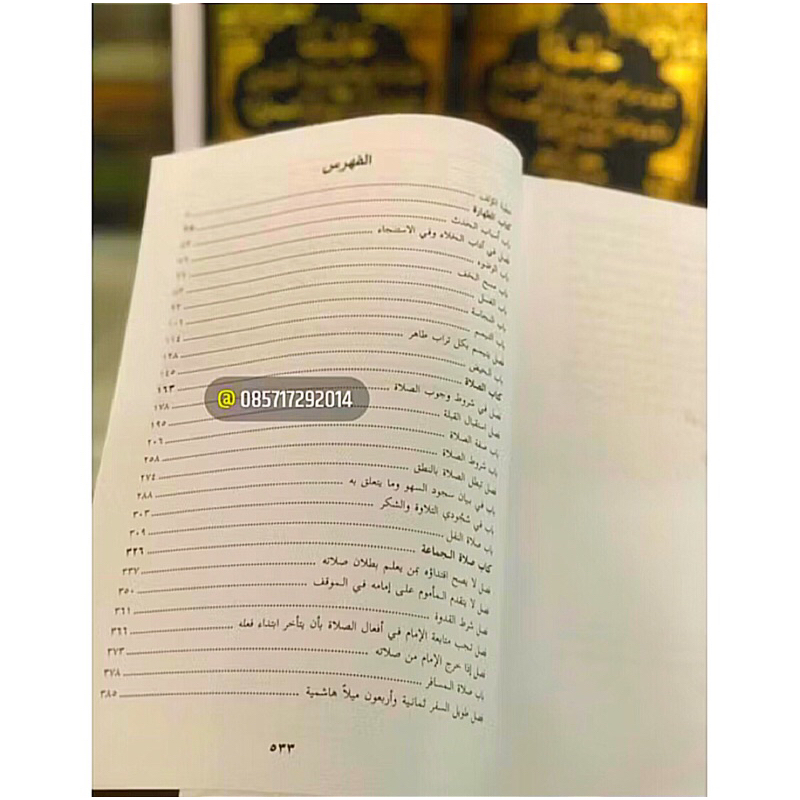 الفهرس
خطبة المؤلف
كتاب الطهارة
باب أسباب الحدث
فصل في آداب الخلاء وفي الاستنجاء
باب الوضوء
باب مسح الخف
باب الغسل
باب النجاسة
باب التيمم
فصل يتيمم بكل تراب طاهر ١١٤
باب الحيض ١٢٨
كتاب الصلاة ١٤٥
فصل في شروط وجوب الصلاة ١٦٣
فصل استقبال القبلة ١٧٨
باب صفة الصلاة ١٩٥
باب شروط الصلاة ٢٠٦
فصل تبطل الصلاة بالنطق ٢٥٨
باب في بيان سجود السهو وما يتعلق به ٢٧٤
باب في سجودي التلاوة والشكر ٢٨٨
باب صلاة النفل ٣٠٣
كتاب صلاة الجماعة ٣٠٩
فصل لا يصح اقتداؤه بمن يعلم بطلان صلاته ٣٢٦
فصل لا يتقدم المأموم على إمامه في الموقف ٣٣٧
فصل شرط القدوة ٣٥٠
فصل تجب متابعة الإمام في أفعال الصلاة بأن يتأخر ابتداء فعله ٣٦١
فصل إذا خرج الإمام من صلاته ٣٦٦
باب صلاة المسافر ٣٧٣
فصل طويل السفر ثمانية وأربعون ميلاً هاشمية ٣٧٨
٣٨٥
٥٣٣
@ 085717292014